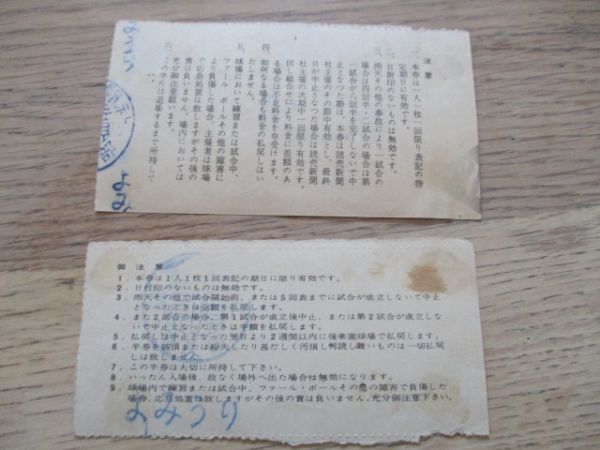 注意
一、本券は一人一枚一回限り表記の指
定期日に有効です。
二、日附印のないものは無効です。
三、雨天その他の事故により一試合の
場合は四回半、二試合の場合は第
二試合が八回半を完了しないで中
止となつた際は、本券は読売新聞
社主催のその節中有効とし、最終
日が中止となつた場合は読売新聞
社主催の次期中一回限り有効です。
但し組合せにより料金に差額のあ
る場合は不足料金を申受けます。
四、如何なる場合も料金の払戻しはい
たしません。
五、球場において練習または試合中、
ファール・ボールその他の障害に
より負傷した場合、主催者は球場
で応急処置は致しますがその後の
責は負いません。場内においては
充分御注意願います。
六、この半券は退場するまで所持して
御注意
1．本券は1人1枚1回表記の期日に限り有効です。
2．日付印のないものは無効です。
3．雨天その他で試合開始前、または5回表までに試合が成立しないで中止
となったときは全額を払戻します。
4．また2試合の場合、第1試合が成立後中止、または第2試合が成立しな
いで中止となったときは半額を払戻します。
5．払戻しは中止となった翌日より2週間以内に後楽園球場で払戻します。
6．半券を破損または紛失したり甚だしく汚損し判読し難いものは一切払戻
しは致しません。
7．この半券は大切に所持して下さい。
8．いったん入場後、故なく場外へ出た場合は無効になります。
9．球場内で練習または試合中、ファール・ボールその他の障害で負傷した
場合、応急処置は致しますがその後の責は負いません。充分御注意下さい。
よみうり